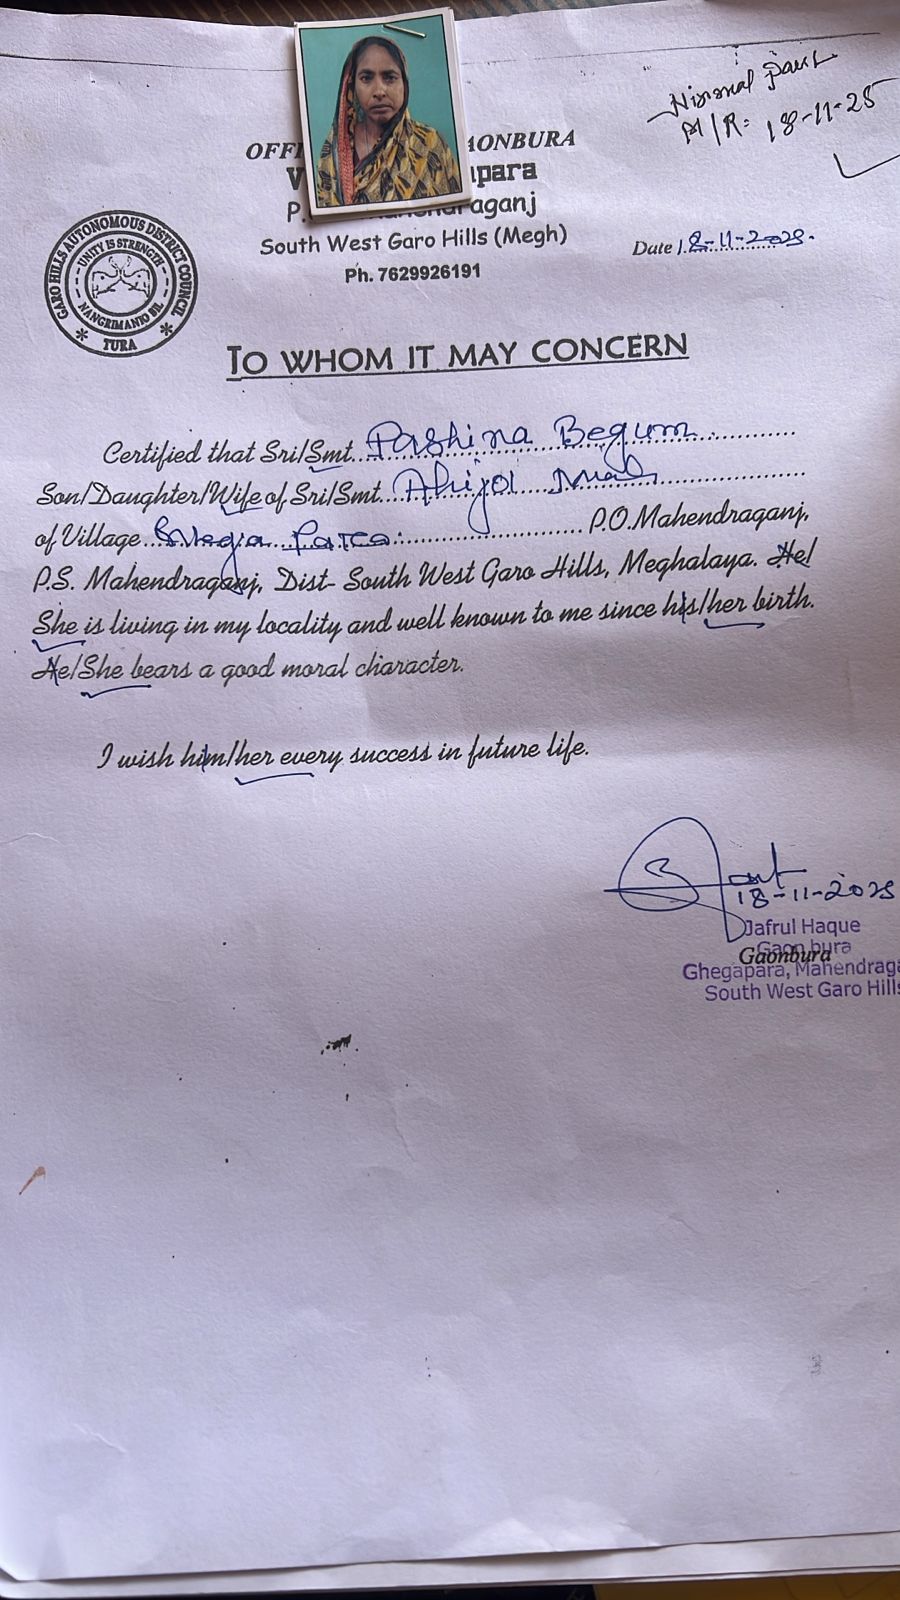 Nirmal Paul
M/R: 18-11-25
OFFI AONBURA
V para
P. Mahendraganj
South West Garo Hills (Megh)
Ph. 7629926191
Date 18-11-2025.
GARO HILLS AUTONOMOUS DISTRICT COUNCIL
UNITY IS STRENGTH
NANGRIMANIO BIL
TURA
TO WHOM IT MAY CONCERN
Certified that Sri/Smt. Pashina Begum
Son/Daughter/Wife of Sri/Smt. Miah
of Village P.O.Mahendraganj,
P.S. Mahendraganj, Dist- South West Garo Hills, Meghalaya. He/
She is living in my locality and well known to me since his/her birth.
He/She bears a good moral character.
I wish him/her every success in future life.
18-11-2025
Jafrul Haque
Gaon bura
Gaonbura
Ghegapara, Mahendraga
South West Garo Hills